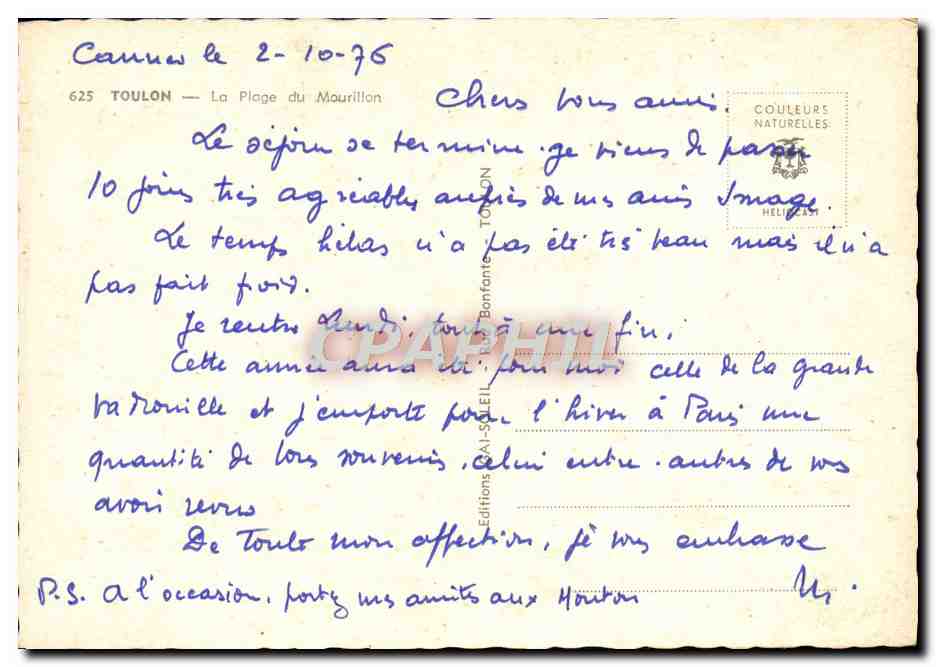 Cannes le 2-10-76
625 TOULON — La Plage du Mourillon
COULEURS
NATURELLES
HELIOCAST
Chers vous amis.
Le séjour se termine. je viens de passer
10 jours très agréables auprès de mes amis Image.
Le temps hélas n'a pas été très beau mais il n'a
pas fait froid.
Je rentre Lundi, tout à une fin.
Cette année aura été pour moi celle de la grande
vadrouille et j'emporte pour l'hiver à Paris une
quantité de bons souvenirs, celui entre autres de vous
avoir revus
De toute mon affection, je vous embrasse
P.S. A l'occasion, portez mes amitiés aux Mouton
Editions GAI-SOLEIL Rue Bonfante TOULON
CPAPHIL